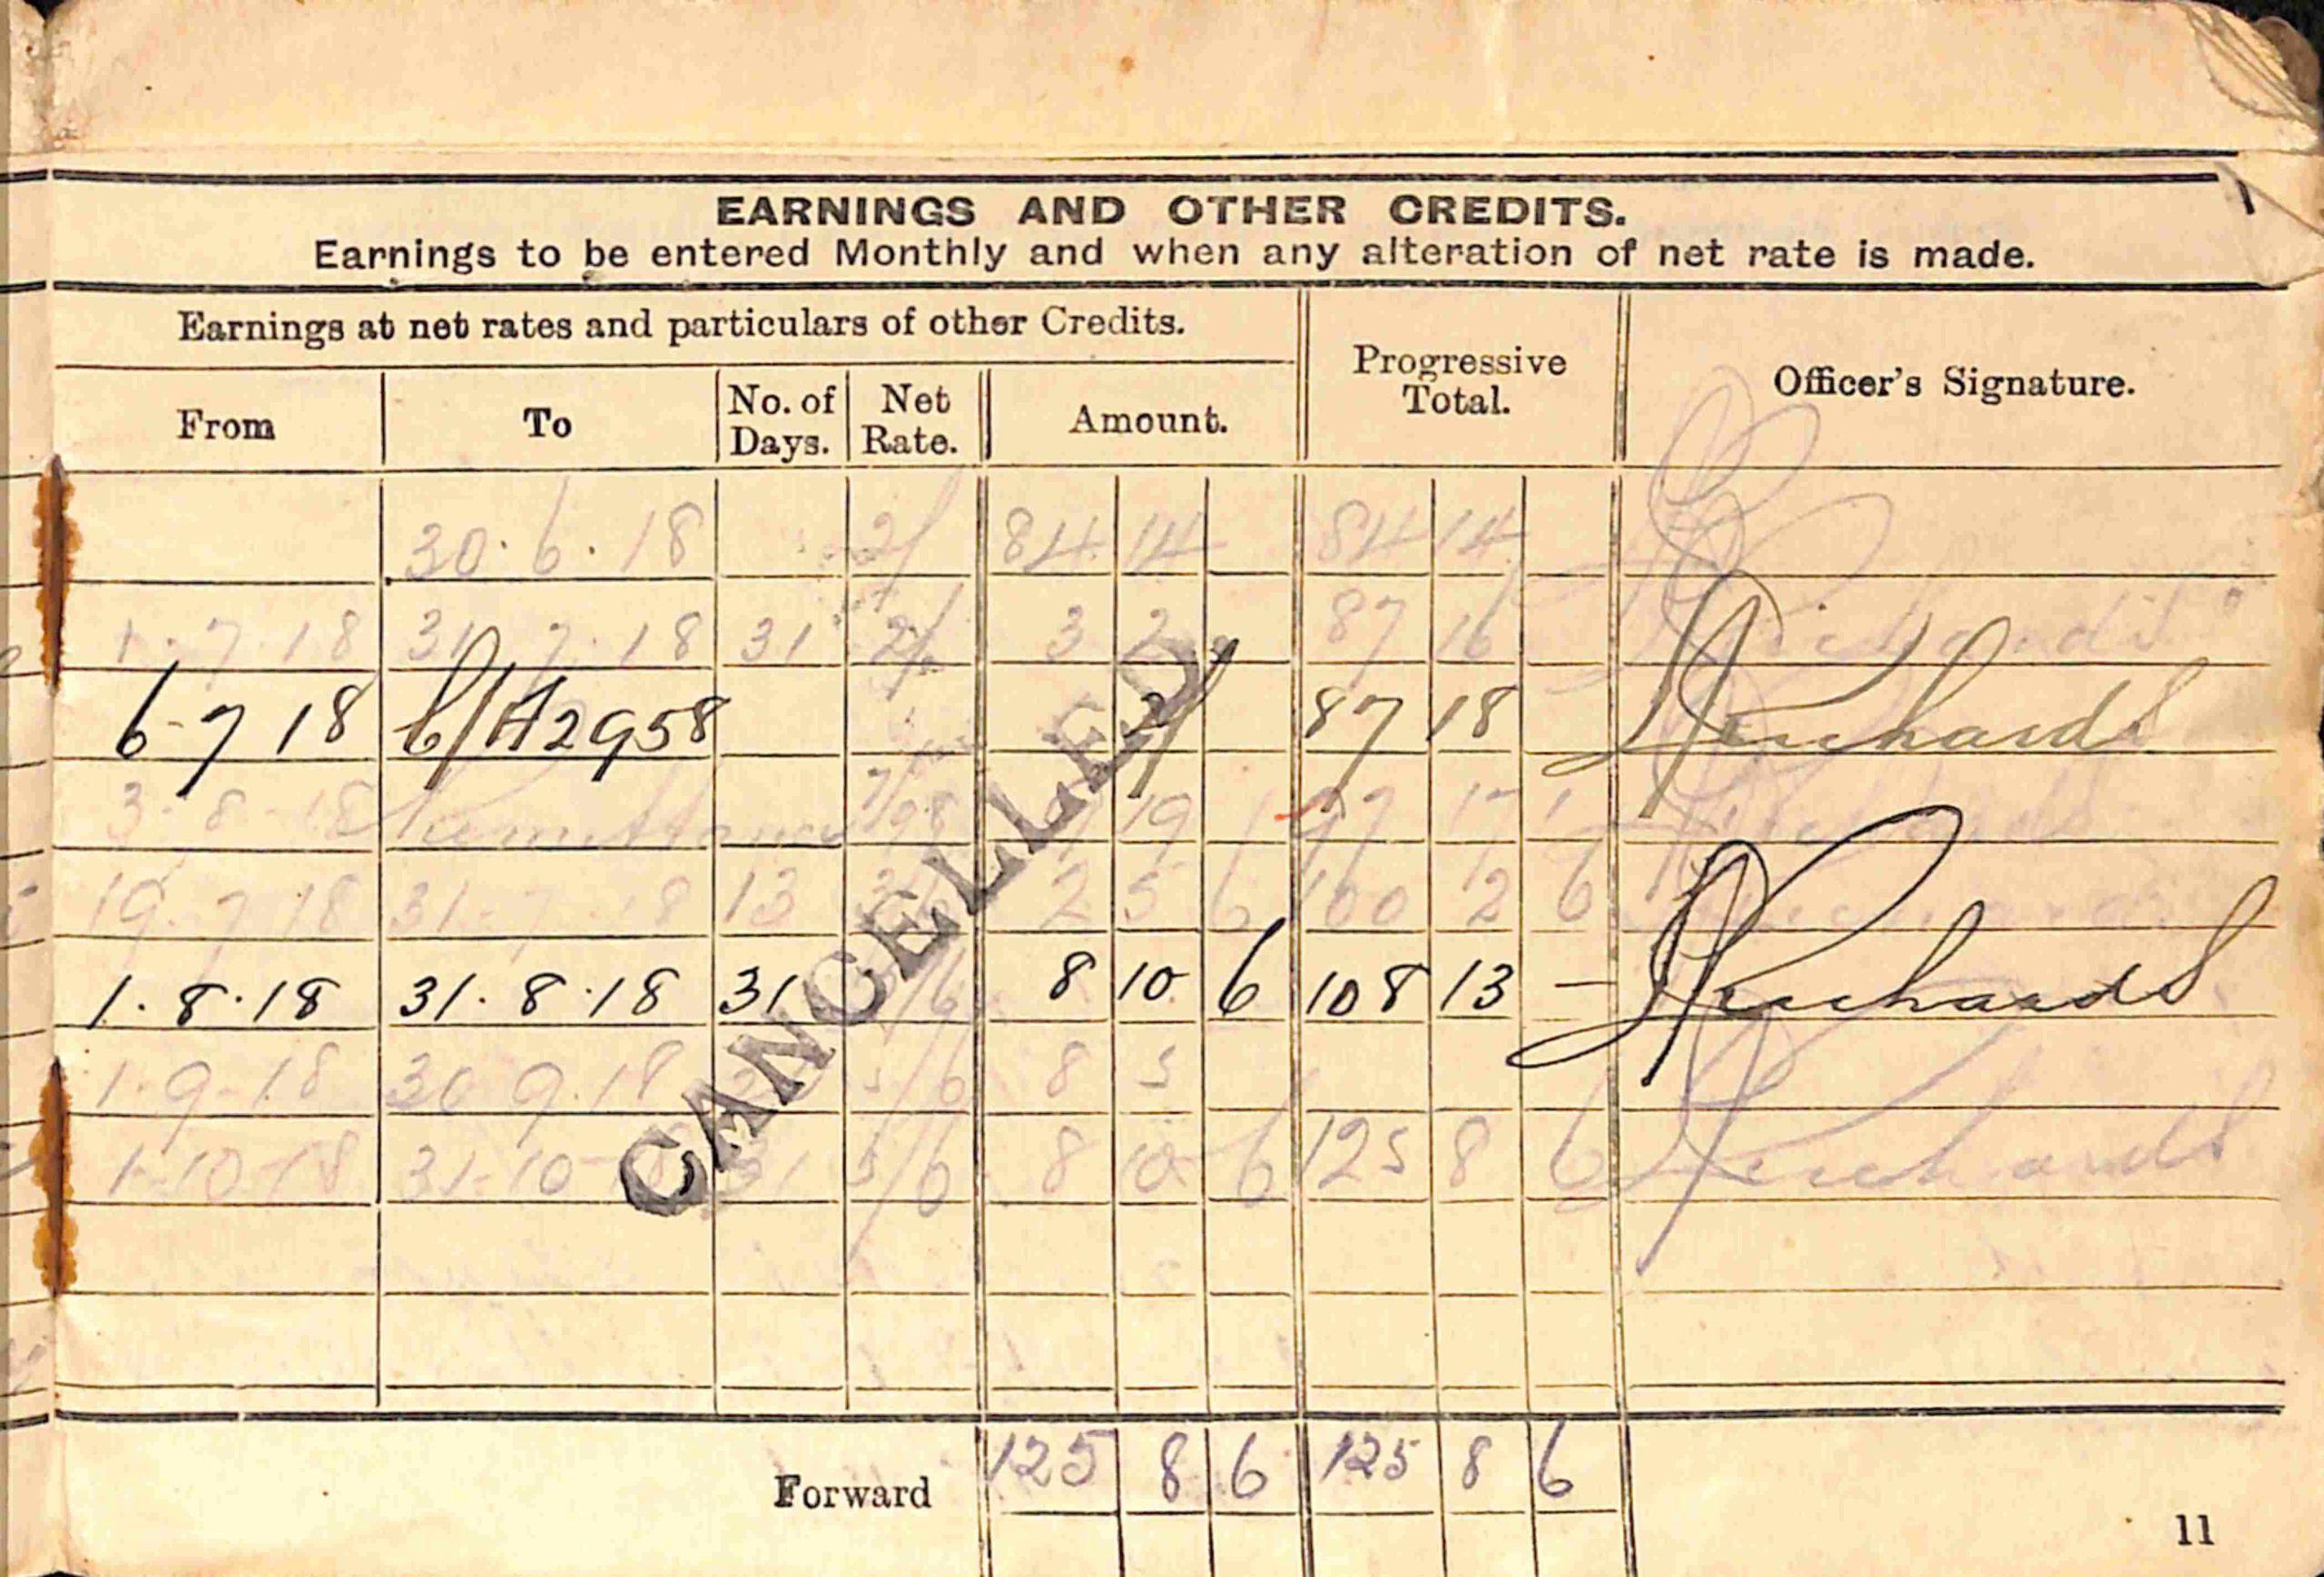 EARNINGS AND OTHER CREDITS.
Earnings to be entered Monthly and when any alteration of net rate is made.
Earnings at net rates and particulars of other Credits.
Progressive Total.
Officer's Signature.
From To No. of Days. Net Rate. Amount.
30.6.18 2/ 84 14 84 14
1.7.18 31.7.18 31 2/ 3 2 87 16 Richards
6-7 18 2/ 87 18 Richards
3-8-18 Remittance 19 17 1
19.7.18 31-7-18 13 2 5 6 100 2 6
1.8.18 31.8.18 31 /6 8 10 6 108 13 - Richards
1-9-18 30 9.18 5/6 8 5
1-10-18 31-10-18 31 5/6 8 10 6 125 8 6 Richards
CANCELLED
Forward 125 8 6 125 8 6
11